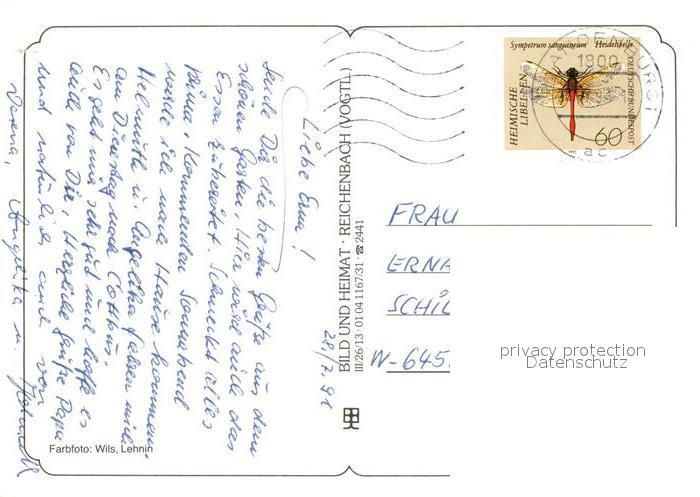 Liebe Erna!
28.7.91
Sende Dir die besten Grüße aus dem
schönen Garten. Hier wird auch das
Essen zubereitet. Schmeckt alles
prima. Kommenden Sonnabend
werde ich nach Hause kommen.
Helmuth u. Angelika fahren mich
am Dienstag nach Cottbus.
Es geht mir sehr gut und hoffe es
auch von Dir. Herzliche Grüße Papa
und natürlich auch von
Angelika u.
Farbfoto: Wils, Lehnin
BILD UND HEIMAT · REICHENBACH (VOGTL.)
III/26/13 · 01 04 1167/31 · ☎ 2441
Sympetrum sanguineum Heidelibelle
HEIMISCHE
LIBELLEN
DEUTSCHE BUNDESPOST
60
1800
FRAU
ERNA
SCHIL
W-645
privacy protection
Datenschutz